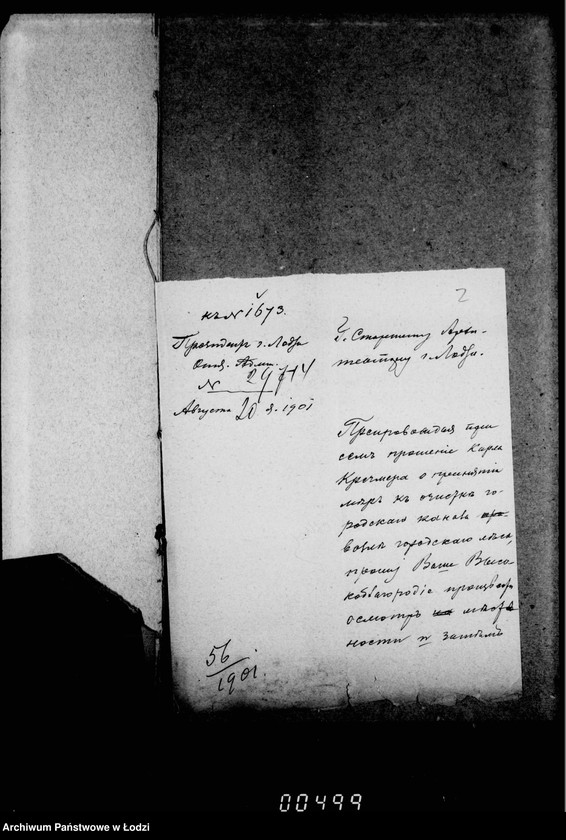 къ № 1673.
Президентъ г. Лодзи
Отд. Адми.
№ 29714
Августа 20 д. 1901
2
Г. Старшему Архи-
тектору г. Лодзи.
Препровождая при
семъ прошеніе Карла
Кречмера о принятіи
мѣръ къ очисткѣ го-
родскаго канава
возлѣ городскаго лѣса,
прошу Ваше Высо-
коблагородіе произвести
осмотръ мѣст-
ности и затѣмъ
56/1901.
00499
Archiwum Państwowe w Łodzi